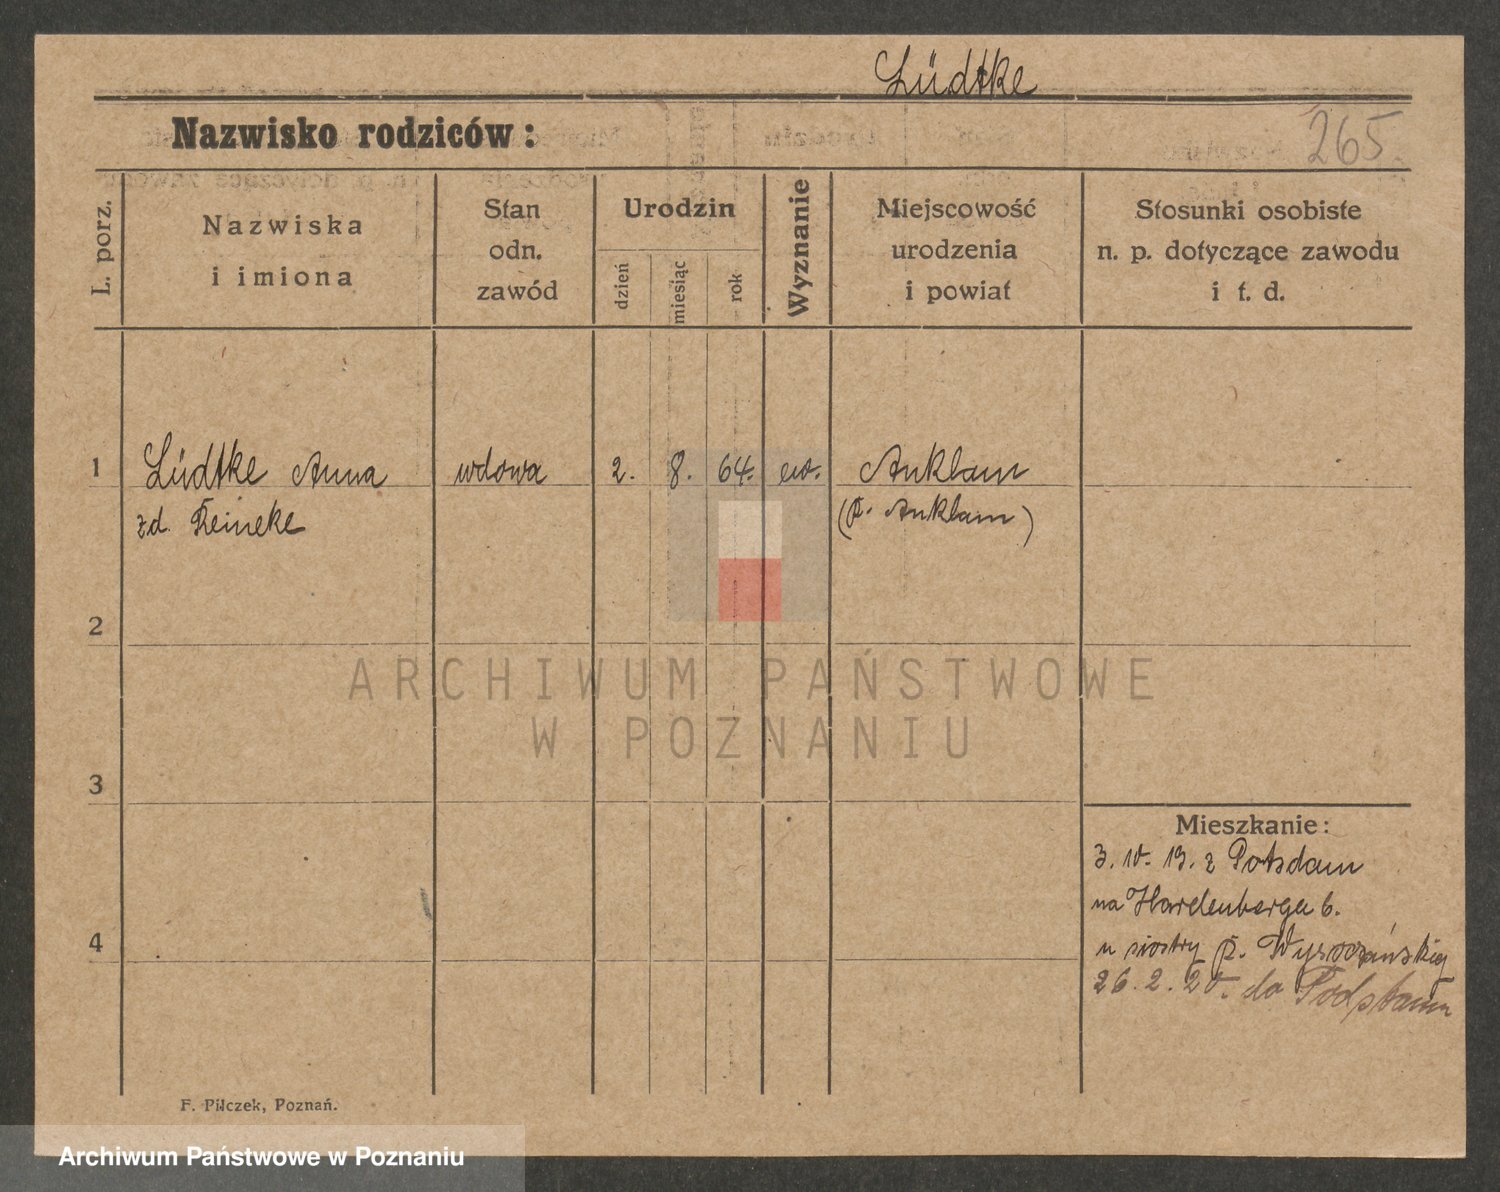 Lüdtke
Nazwisko rodziców:
265
L. porz.
Nazwiska
i imiona
Stan
odn.
zawód
Urodzin
dzień
miesiąc
rok
Wyznanie
Miejscowość
urodzenia
i powiat
Stosunki osobiste
n. p. dotyczące zawodu
i t. d.
1 Lüdtke Anna wdowa 2. 8. 64. ew. Anklam
zd. Reineke (p. Anklam)
2
ARCHIWUM PAŃSTWOWE
W POZNANIU
3
Mieszkanie:
3. 10. 19. z Potsdam
na Hardenberga 6.
4
u siostry p. Wysoczańskiej
26. 2. 20. do
F. Pilczek, Poznań.
Archiwum Państwowe w Poznaniu